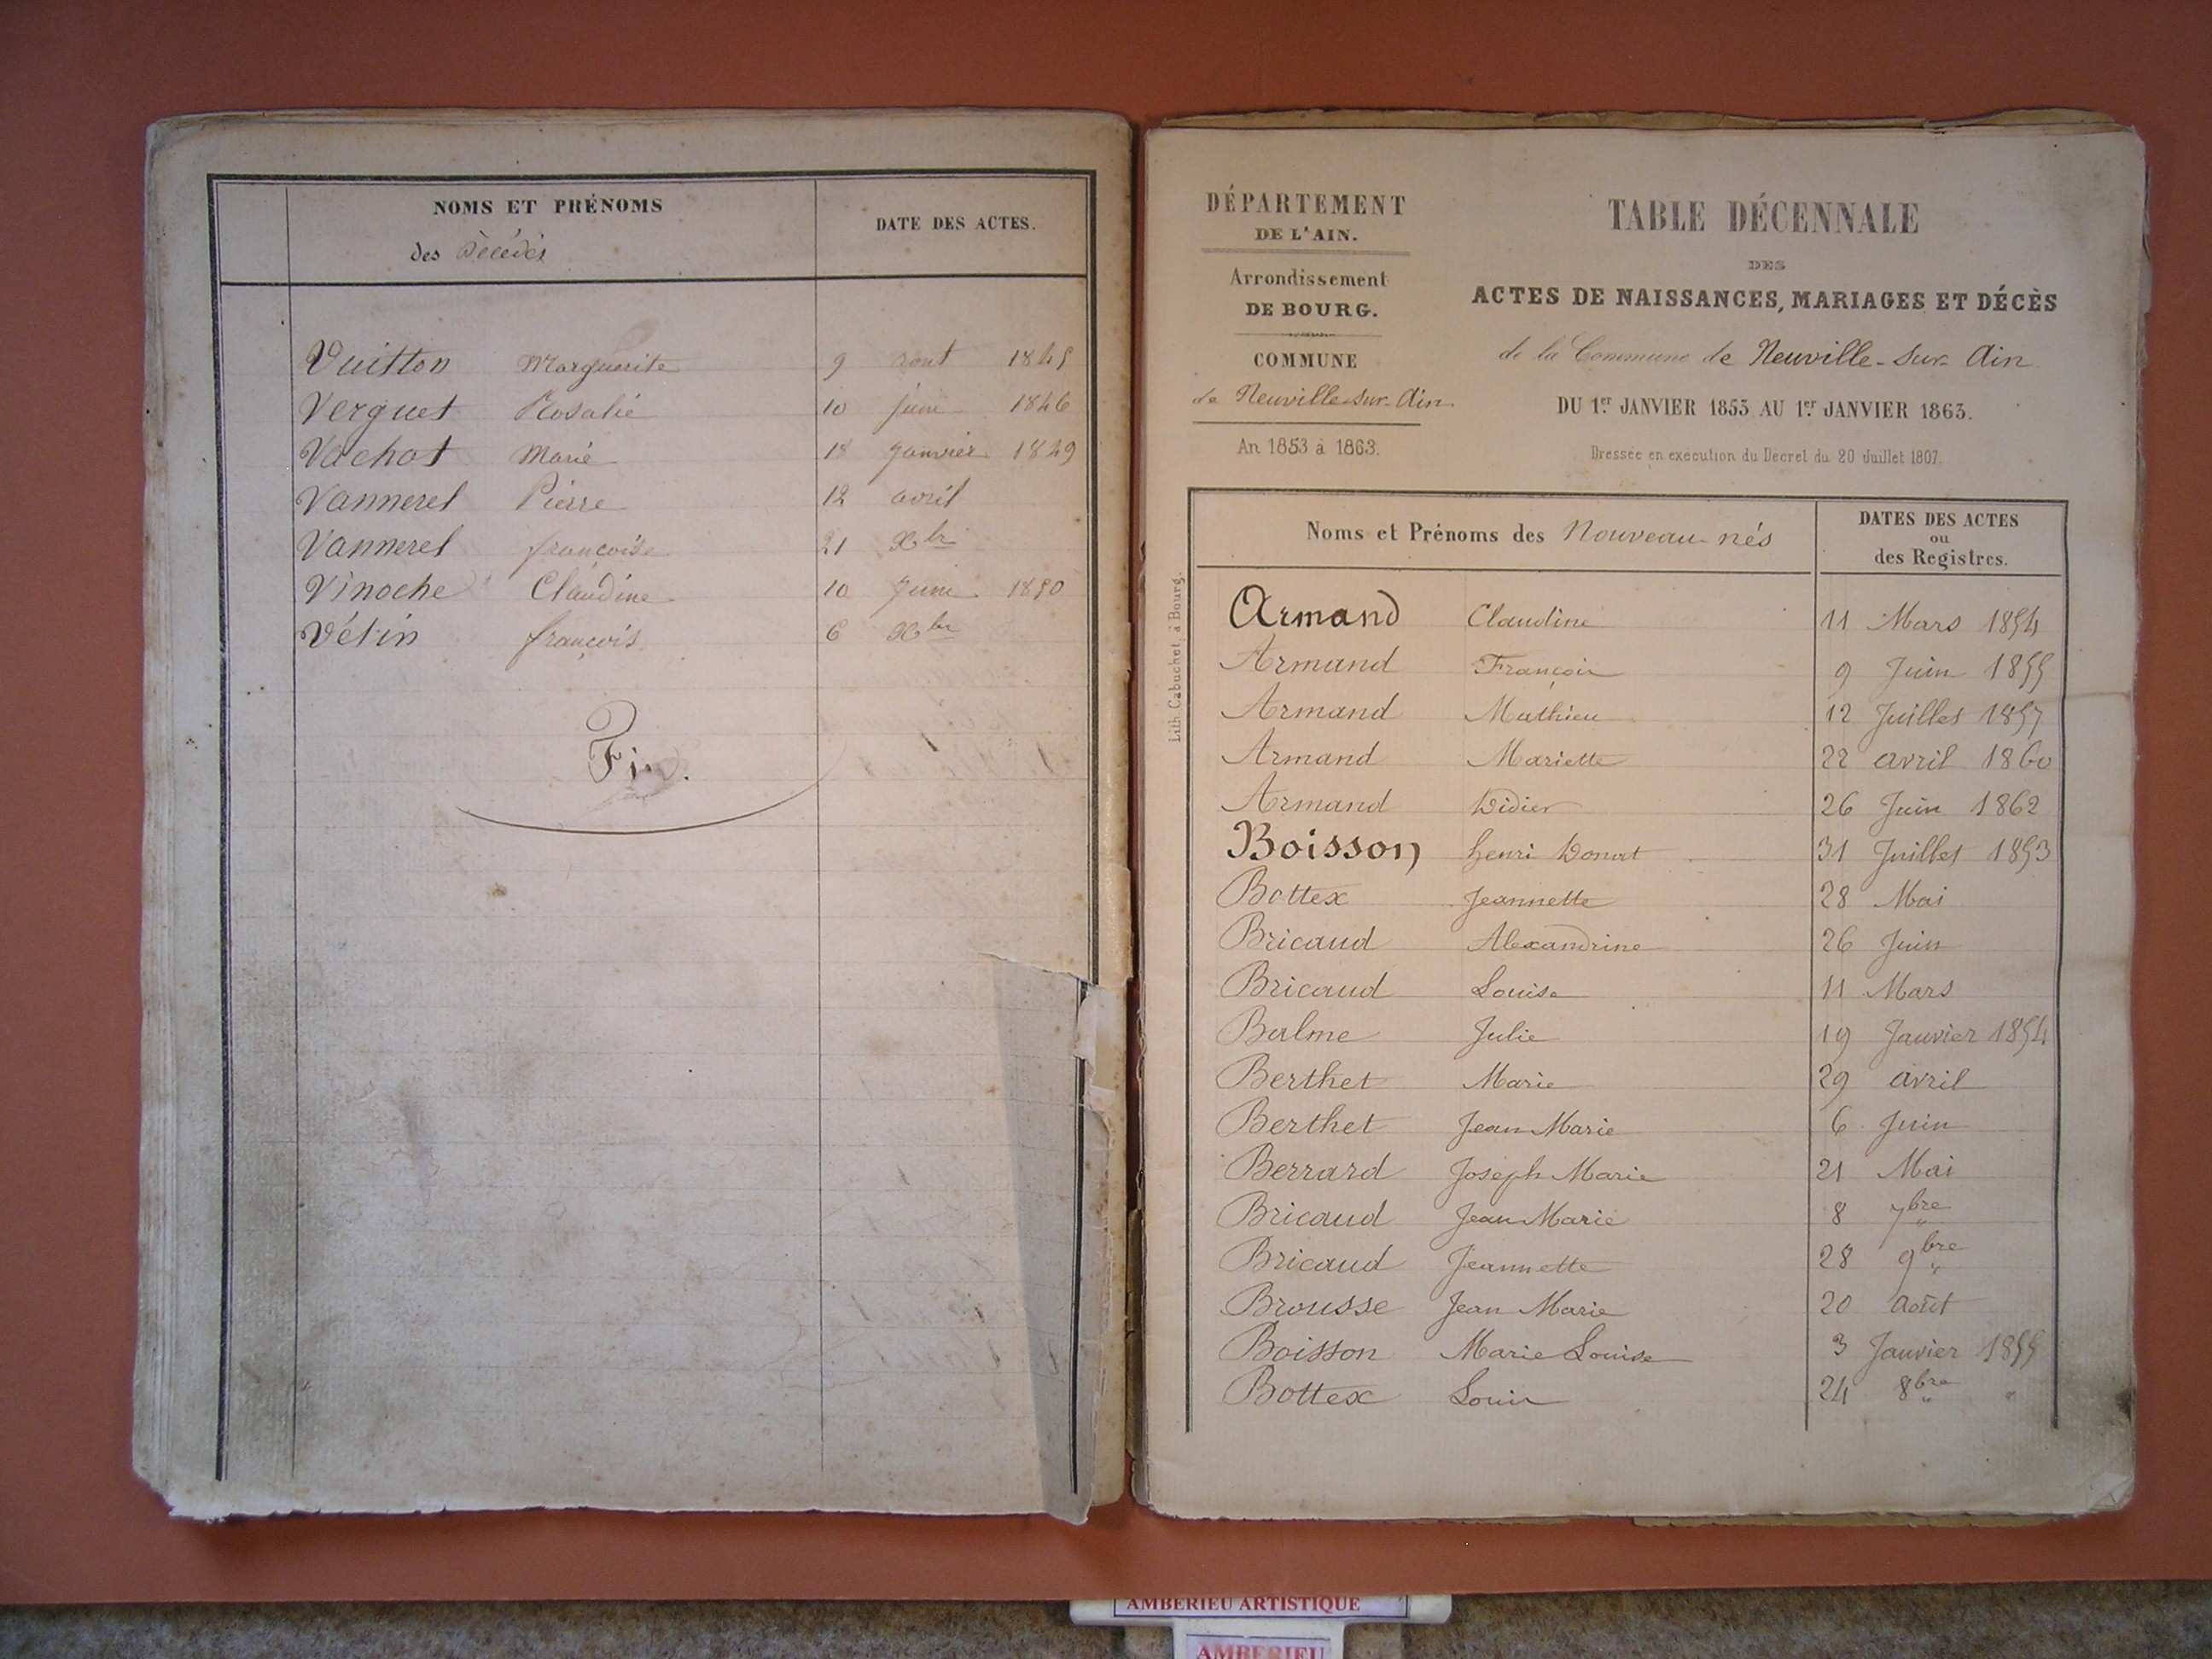 NOMS ET PRÉNOMS
des Décédés
DATE DES ACTES.
Vuitton Marguerite 9 aout 1845
Verguet Rosalie 10 juin 1846
Vachot Marie 18 Janvier 1849
Vannerel Pierre 12 avril
Vannerel françoise 21 Xbre
Vinoche Claudine 10 Juin 1850
Vétin françois 6 Xbre
Fin.
DÉPARTEMENT
DE L'AIN.
Arrondissement
DE BOURG.
COMMUNE
de Neuville-sur-Ain
An 1853 à 1863.
TABLE DÉCENNALE
DES
ACTES DE NAISSANCES, MARIAGES ET DÉCÈS
de la Commune de Neuville-sur-Ain
DU 1er JANVIER 1853 AU 1er JANVIER 1863.
Dressée en exécution du Décret du 20 Juillet 1807.
Noms et Prénoms des Nouveau-nés
DATES DES ACTES
ou
des Registres.
Armand Claudine 11 Mars 1854
Armand François 9 Juin 1855
Armand Mathieu 12 Juillet 1857
Armand Mariette 22 avril 1860
Armand Didier 26 Juin 1862
Boisson henri Donat 31 Juillet 1853
Bottex Jeannette 28 Mai
Bricaud Alexandrine 26 Juin
Bricaud Louise 11 Mars
Balme Julie 19 Janvier 1854
Berthet Marie 29 avril
Berthet Jean Marie 6 Juin
Berrard Joseph Marie 21 Mai
Bricaud Jean Marie 8 7bre
Bricaud Jeannette 28 9bre
Brousse Jean Marie 20 Août
Boisson Marie Louise 3 Janvier 1855
Bottex Louis 24 8bre "
Lith. Cabuchet, à Bourg.
AMBERIEU ARTISTIQUE
AMBERIEU